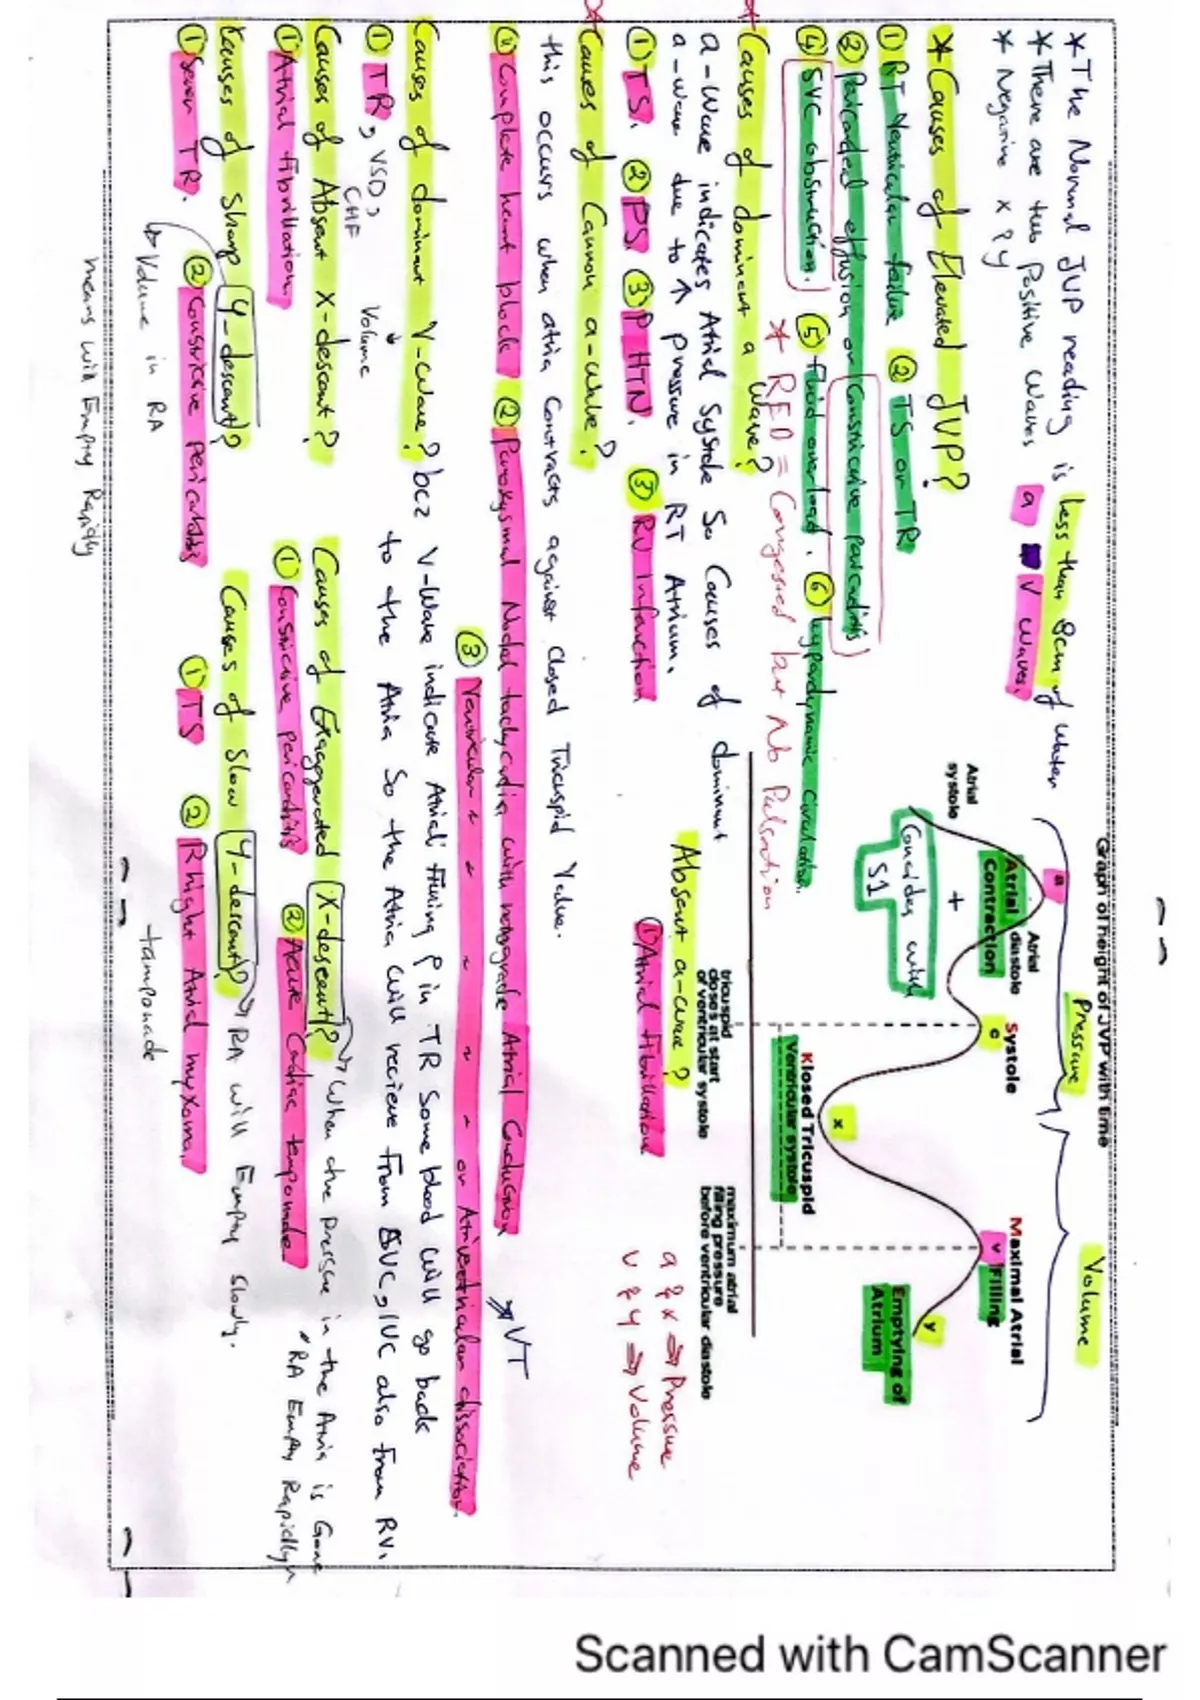 * The Normal JVP reading is less than 8cm of water
* There are two Positive waves a V waves.
* Negative x & y
Graph of height of JVP with time
Pressure
Volume
Atrial systole
a
Atrial Contraction
Atrial diastole
+
Concides with S1
Systole
c
x
Klosed Tricuspid
Ventricular systole
Maximal Atrial
v Filling
y
Emptying of Atrium
tricuspid
closes at start
of ventricular systole
maximum atrial
filling pressure
before ventricular diastole
* Causes of Elevated JVP?
① RT Ventricular failure ② TS or TR
③ Pericardeal effusion or Constrictive pericarditis
④ SVC obstruction. ⑤ fluid overload. ⑥ hyperdynamic Circulation.
* RED = Congested but No Pulsation
* Causes of dominent a wave?
a-Wave indicates Atrial Systole So Causes of dominent
a-wave due to ↑ pressure in RT Atrium.
① TS. ② PS. ③ P HTN. ③ RV infarction
Absent a-wave?
① Atrial fibrillation
a & x ⇒ Pressure
v & y ⇒ Volume
* Causes of Cannon a-wave?
this occurs when atria Contracts against Closed Tricuspid Valve.
① Complete heart block ② Paroxysmal Nodal tachycardia with retrograde Atrial Conduction
③ Ventricular " " " " " or Atriventricular dissociation.
VT
Causes of dominant V-wave? bcz V-Wave indicate Atrial filling P in TR Some blood will go back
① TR, VSD, CHF Volume to the Atria So the Atria will recieve from SVC, IVC also from RV.
Causes of Absent X-descent?
① Atrial fibrillation
Causes of Exaggerated X-descent? When the pressure in the Atria is Gone
① Constrictive pericarditis ② Acute Cardiac temponade
"RA Empty Rapidly"
Causes of Sharp Y-descent?
① Sever TR. ② Constrictive pericarditis
Volume in RA
means will Empty Rapidly
Causes of Slow Y-descent? RA will Empty Slowly.
① TS ② Rhight Atrial myxoma.
tamponade
Scanned with CamScanner